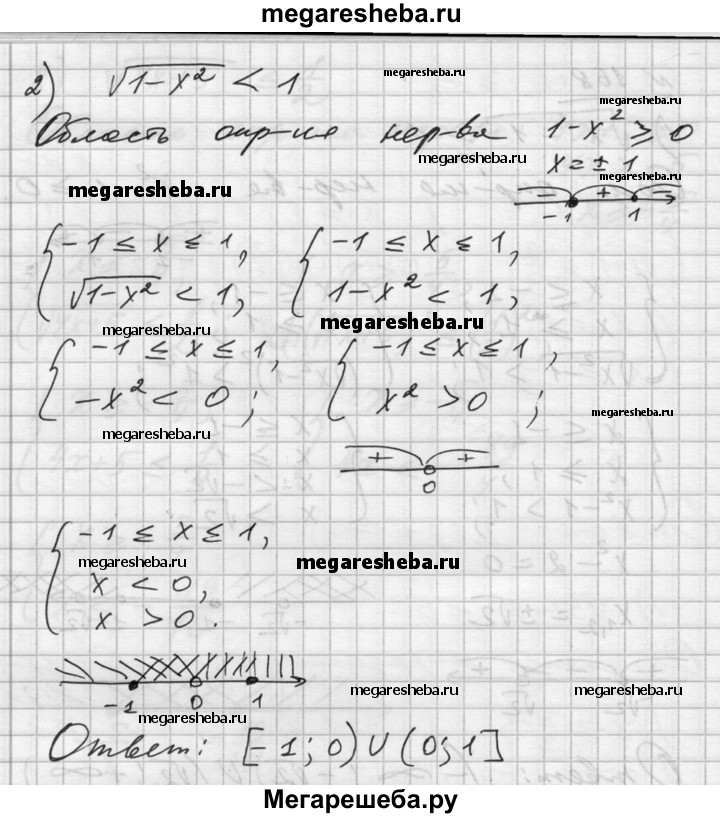 megaresheba.ru
2) √1-x² < 1
megaresheba.ru
megaresheba.ru
Область опр-ия нер-ва 1-x² ≥ 0
megaresheba.ru
x = ± 1
megaresheba.ru
megaresheba.ru
- + -
-1 1
{ -1 ≤ x ≤ 1, { -1 ≤ x ≤ 1,
√1-x² < 1, 1-x² < 1,
megaresheba.ru megaresheba.ru
{ -1 ≤ x ≤ 1, { -1 ≤ x ≤ 1,
-x² < 0; x² > 0 ;
megaresheba.ru
megaresheba.ru
+ +
0
{ -1 ≤ x ≤ 1,
megaresheba.ru megaresheba.ru
x < 0,
x > 0.
-1 0 1
megaresheba.ru megaresheba.ru
megaresheba.ru
Ответ: [-1; 0) ∪ (0; 1]
Мегарешеба.ру